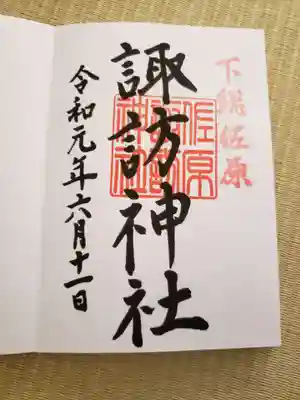 下総佐原
諏訪神社
佐原諏訪神社
令和元年六月十一日